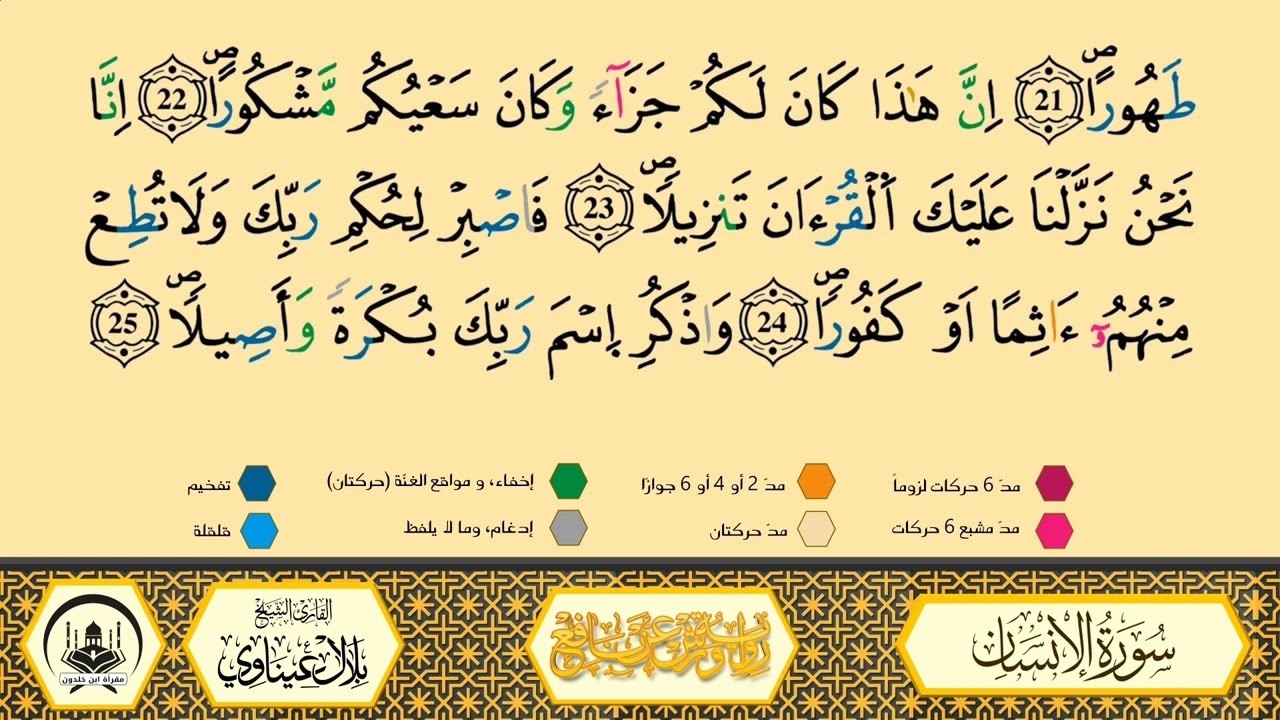 طَهُورًاۖ 21 اِنَّ هَٰذَا كَانَ لَكُمْ جَزَآءً وَكَانَ سَعْيُكُم مَّشْكُورًاۖ 22 اِنَّا
نَحْنُ نَزَّلْنَا عَلَيْكَ اَ۬لْقُرْءَانَ تَنزِيلًاۖ 23 فَاصْبِرْ لِحُكْمِ رَبِّكَ وَلَا تُطِعْ
مِنْهُمُۥٓ ءَاثِمًا اَوْ كَفُورًاۖ 24 وَاذْكُرِ اِ۪سْمَ رَبِّكَ بُكْرَةً وَأَصِيلًاۖ 25
مدّ 6 حركات لزوماً مدّ 2 أو 4 أو 6 جوازًا إخفاء، و مواقع الغنّة (حركتان) تفخيم
مدّ مشبع 6 حركات مدّ حركتان إدغام، وما لا يلفظ قلقلة
سُورَةُ الإِنْسَانِ
رواية ورش عن نافع
القارئ الشيخ
بلال عيناوي
مقرأة ابن خلدون